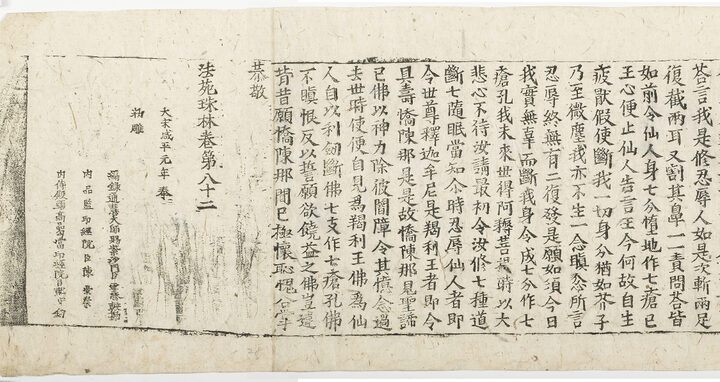 答言我是修忍辱人如是次斬兩足
復截兩耳又割其鼻一一責問答皆
如前令仙人身七分墮地作七瘡已
王心便止仙人告言王今何故自生
疲猒假使斷我一切身分猶如芥子
乃至微塵我亦不生一念瞋忿所言
忍辱終無有二復發是願如汝今日
我實無辜而斷我身令成七分作七
瘡孔我未來世得阿耨菩提時以大
悲心不待汝請最初令汝修七種道
斷七隨眠當知尒時忍辱仙人者即
今世尊釋迦牟尼是羯利王者即今
具壽憍陳那是是故憍陳那見聖諦
已佛以神力除彼闇障令其憶念過
去世時使便自見為羯利王佛為仙
人自以利劒斷佛七支作七瘡孔佛
不瞋恨反以誓願欲饒益之佛豈違
昔昔願憍陳那聞已極懷恥愧合掌
恭敬
法苑珠林卷第八十二
大宋咸平元年奉
勑雕
內品監印經院臣陳